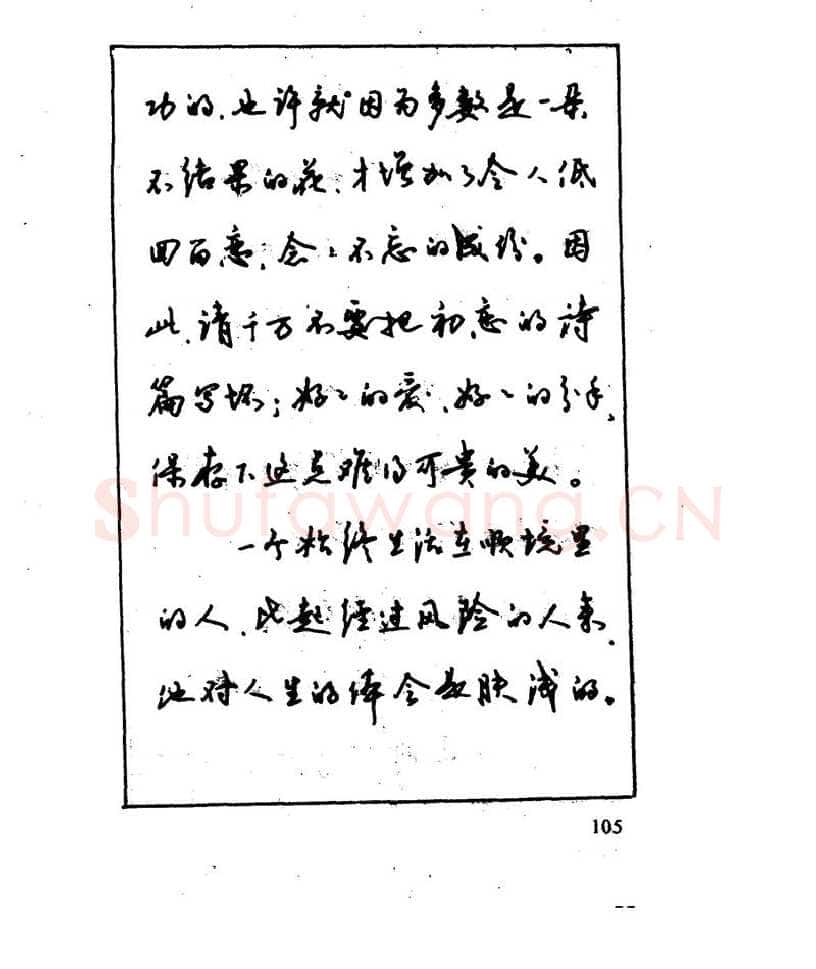 功的,也许就因为多数是一朵
不结果的花,才增加了令人低
回留恋,念念不忘的成份。因
此,请千万不要把初恋的诗
篇写坏;好好的爱,好好的分手,
保存下这点难得可贵的美。
Shufawang.CN
一个始终生活在顺境里
的人,比起经过风险的人来,
他对人生的体会是肤浅的。
105